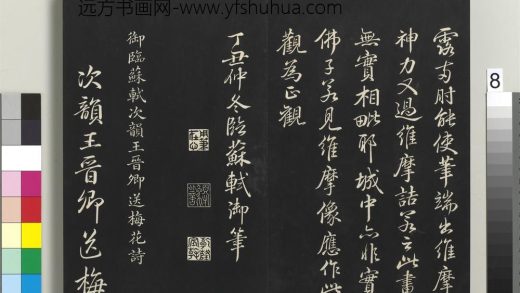 远方书画网-www.yfshuhua.com
露寸肘能使筆端出維摩
神力又過維摩詰若云此畫
無實相毗耶城中亦非實
佛子若見維摩像應作此
觀為正觀
丁丑仲冬臨蘇軾御筆
御臨蘇軾次韻王晉卿送梅花詩
次韻王晉卿送梅
8